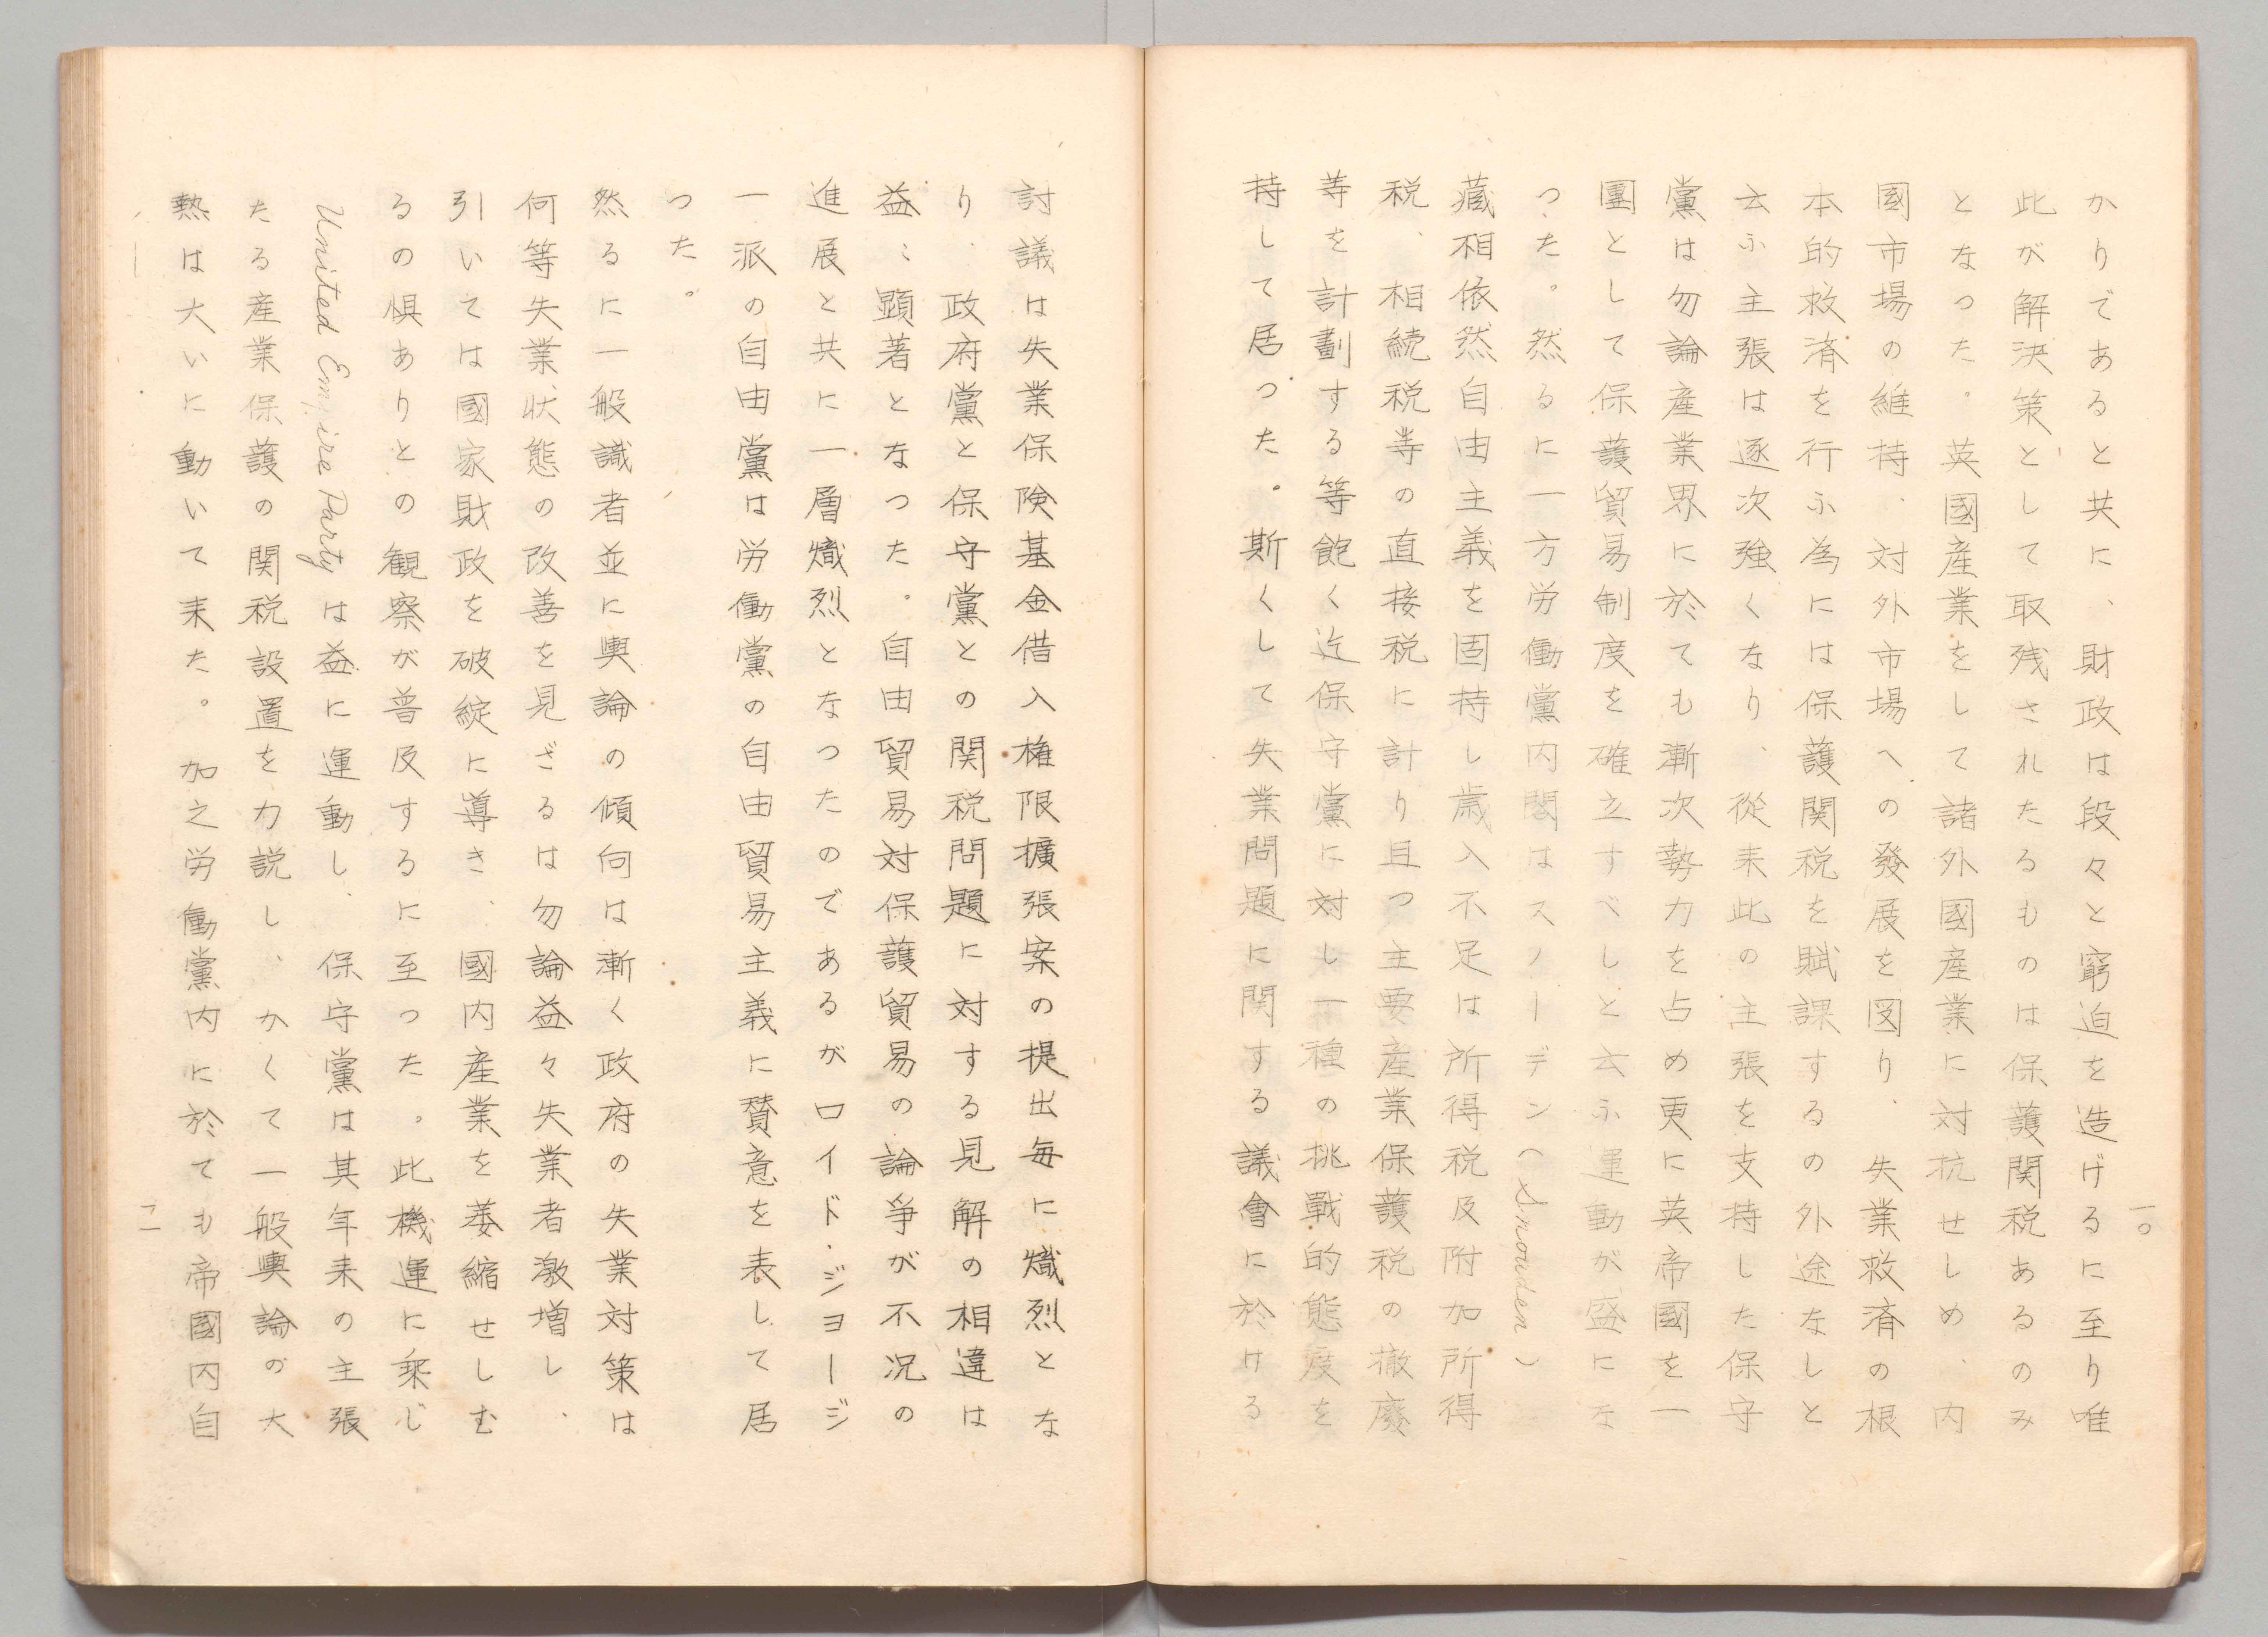 一〇
かりであると共に、財政は段々と窮迫を造げるに至り唯
此が解決策として取残されたるものは保護関税あるのみ
となった。英國産業をして諸外國産業に対抗せしめ、内
國市場の維持、対外市場への發展を図り、失業救済の根
本的救済を行ふ為には保護関税を賦課するの外途なしと
云ふ主張は逐次強くなり、從来此の主張を支持した保守
黨は勿論産業界に於ても漸次勢力を占め更に英帝國を一
團として保護貿易制度を確立すべしと云ふ運動が盛にな
つた。然るに一方労働黨内閣はスノーデン（Snowden）
藏相依然自由主義を固持し歳入不足は所得税及附加所得
税、相続税等の直接税に計り且つ主要産業保護税の撤廢
等を計劃する等飽く迄保守黨に対し一種の挑戰的態度を
持して居つた。斯くして失業問題に関する議會に於ける
討議は失業保険基金借入権限擴張案の提出毎に熾烈とな
り、政府黨と保守黨との関税問題に対する見解の相違は
益〻顕著となつた。自由貿易対保護貿易の論爭が不況の
進展と共に一層熾烈となつたのであるがロイド・ジヨージ
一派の自由黨は労働黨の自由貿易主義に賛意を表して居
つた。
然るに一般識者並に輿論の傾向は漸く政府の失業対策は
何等失業状態の改善を見ざるは勿論益々失業者激増し、
引いては國家財政を破綻に導き、國内産業を萎縮せしむ
るの惧ありとの観察が普及するに至つた。此機運に乘じ
United Empire Party は益に運動し、保守黨は其年来の主張
たる産業保護の関税設置を力説し、かくて一般輿論の大
熱は大いに動いて来た。加之労働黨内に於ても帝國内自
一一